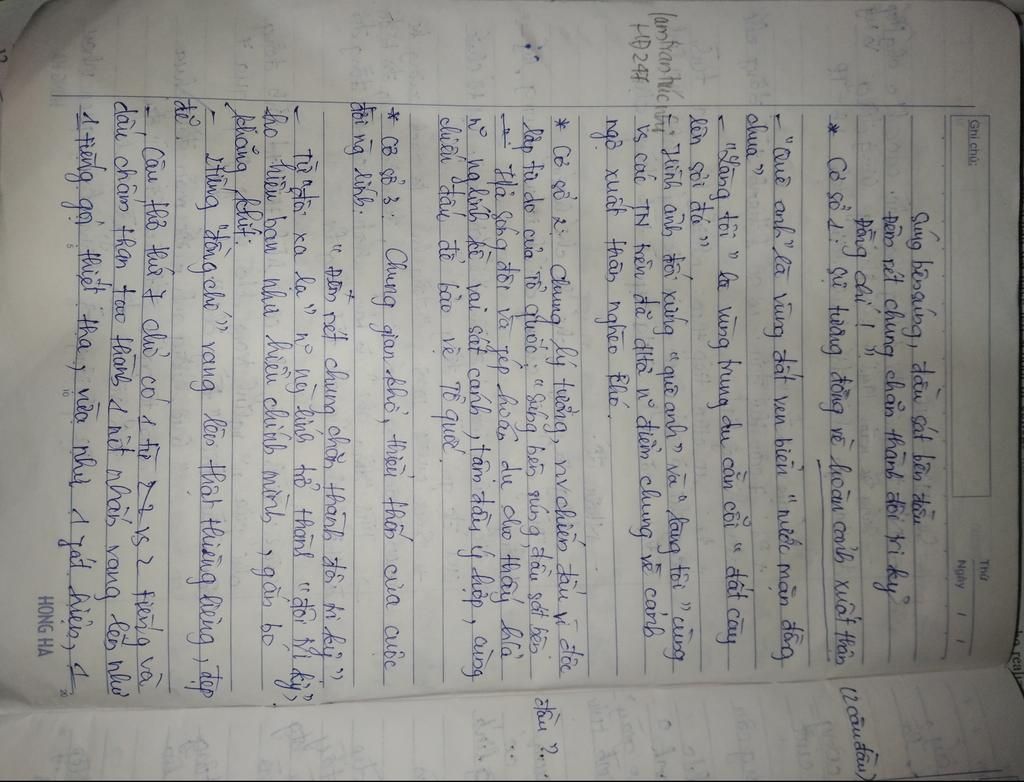 Ghi chú:
Thứ
Ngày / /
Súng bên súng, đầu sát bên đầu
Đêm rét chung chăn thành đôi tri kỷ
Đồng chí ! "
* Cơ sở 1: sự tương đồng về hoàn cảnh xuất thân
(2 câu đầu)
- "Quê anh" là vùng đất ven biển "nước mặn đồng
chua"
- "Làng tôi" là vùng trung du cằn cỗi "đất cày
lên sỏi đá"
Hình ảnh đối xứng "quê anh" và "làng tôi" cùng
vs các TN trên đã thể n° điểm chung về cảnh
ngộ xuất thân nghèo khó.
lamtrantruc
HĐ247
* Cơ sở 2: chung lý tưởng, nv chiến đấu vì độc
lập tự do của Tổ quốc: "Súng bên súng đầu sát bên
đầu"...
Hả sóng đôi và phép hoán dụ cho thấy h/ả
n° ng lính kề vai sát cánh, tâm đầu ý hợp, cùng
chiến đấu để bảo vệ Tổ quốc
* Cơ sở 3: Chung gian khổ, thiếu thốn của cuộc
đời ng lính.
" Đêm rét chung chăn thành đôi tri kỷ"
- Từ "đôi xa lạ" n° ng lính trở thành "đôi tri kỷ"
họ hiểu bạn như hiểu chính mình, gắn bó
khăng khít.
- 2 tiếng "đồng chí" vang lên thật thiêng liêng, đẹp
đẽ.
- Câu thơ thứ 7 chỉ có 1 từ vs 2 tiếng và
dấu chấm than tạo thành 1 nốt nhấn vang lên như
1 tiếng gọi thiết tha, vừa như 1 phát hiện, 1
5
10
20
HONG HA